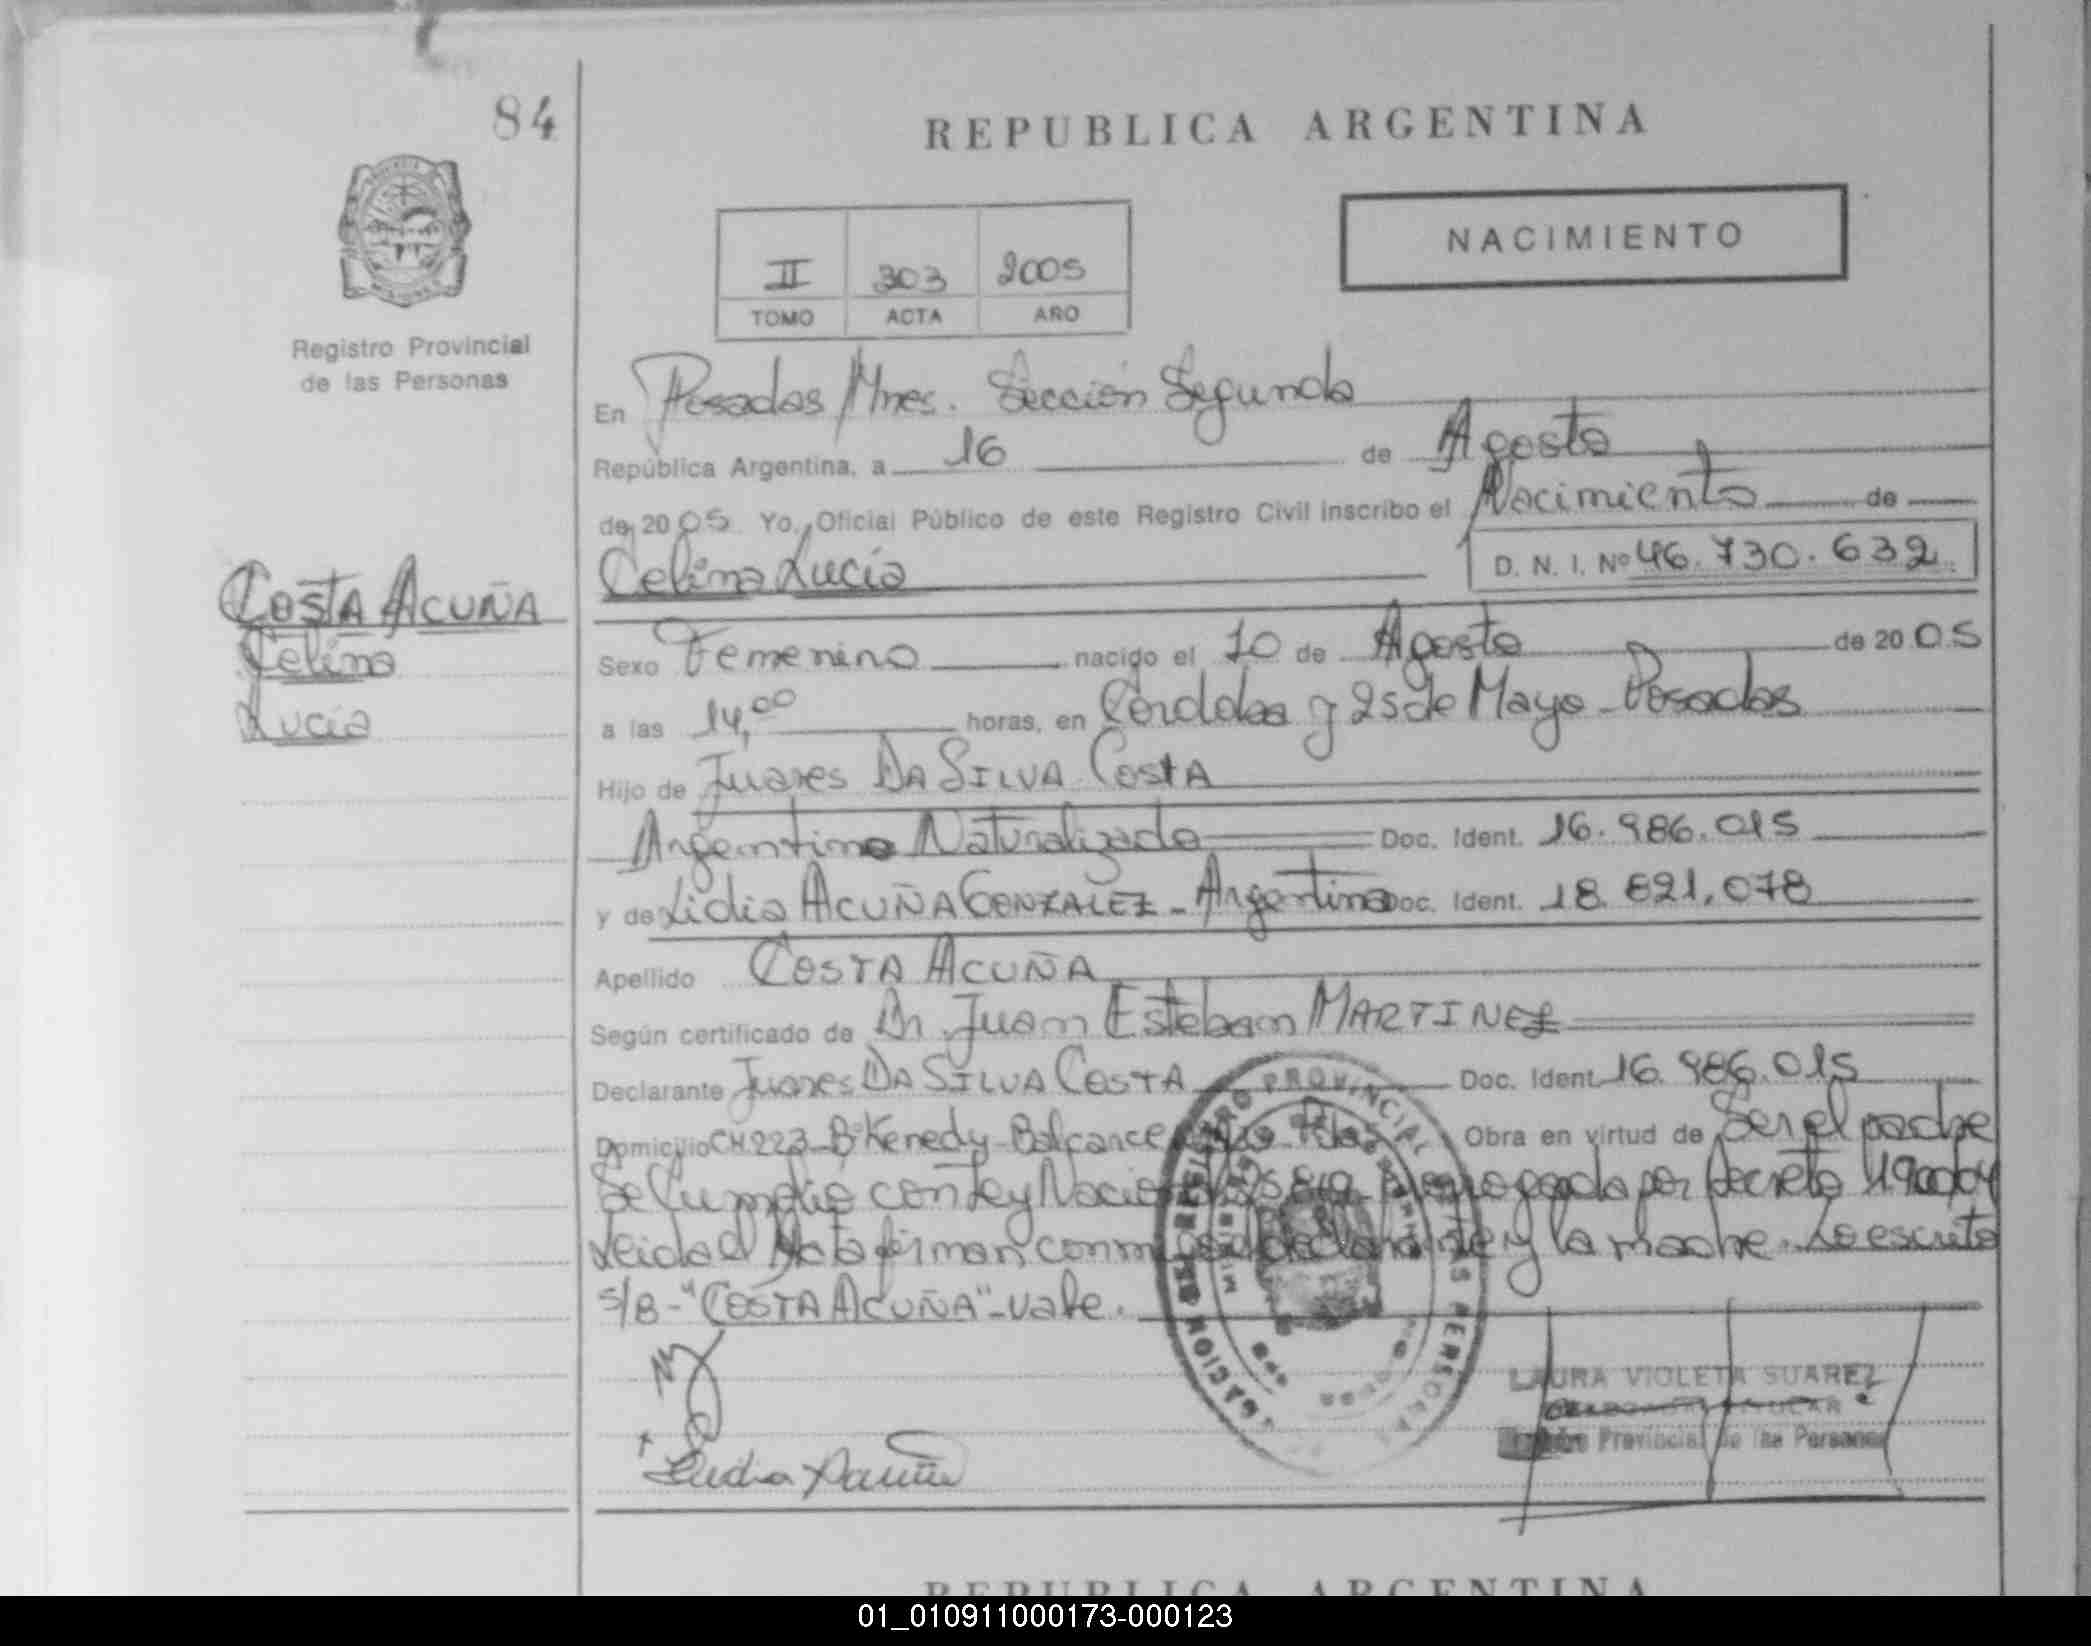 84
REPUBLICA ARGENTINA
NACIMIENTO
II 303 2005
TOMO ACTA AÑO
Registro Provincial
de las Personas
En Posadas Mnes. Sección Segunda
República Argentina, a 16 de Agosto
de 2005 Yo, Oficial Público de este Registro Civil inscribo el Nacimiento de
Celina Lucía
D. N. I. Nº 46.730.632
COSTA ACUÑA
Celina
Lucía
Sexo Femenino nacido el 10 de Agosto de 2005
a las 14,00 horas, en Córdoba y 25 de Mayo - Posadas
Hijo de Juares DA SILVA COSTA
Argentino Naturalizado Doc. Ident. 16.986.015
y de Lidia ACUÑA GONZALEZ - Argentina Doc. Ident. 18.821.078
Apellido COSTA ACUÑA
Según certificado de Dr. Juan Esteban MARTINEZ
Declarante Juares DA SILVA COSTA Doc. Ident. 16.986.015
Domicilio CH 223 - Bº Kenedy - Obra en virtud de Ser el padre
Se Cumplió con Ley por Decreto
Leida el Acta firman conmigo el declarante y la madre. Lo escrito
s/B - "COSTA ACUÑA" - vale.
REGISTRO PROVINCIAL DE LAS PERSONAS
LAURA VIOLETA SUAREZ
Provincial de las Personas
REPUBLICA ARGENTINA
01_010911000173-000123